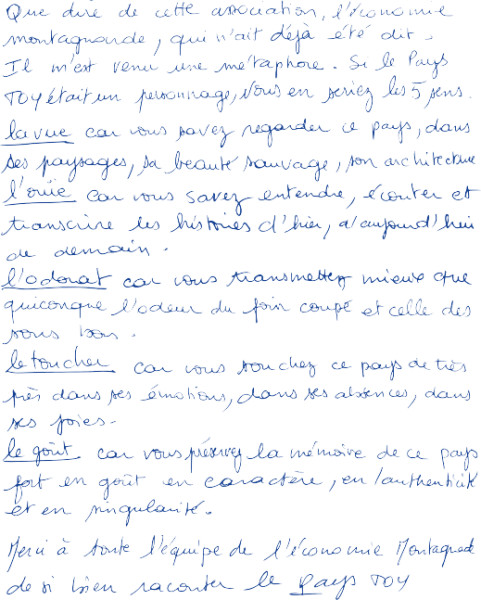 Que dire de cette association, l'économie
montagnarde, qui n'ait déjà été dit.
Il m'est venu une métaphore. Si le Pays
TOY était un personnage, vous en seriez les 5 sens.
la vue car vous savez regarder ce pays, dans
ses paysages, sa beauté sauvage, son architecture
l'ouïe car vous savez entendre, écouter et
transcrire les histoires d'hier, d'aujourd'hui
de demain.
l'odorat car vous transmettez mieux que
quiconque l'odeur du foin coupé et celle des
sous bois.
le toucher car vous touchez ce pays de très
près dans ses émotions, dans ses absences, dans
ses joies.
le goût car vous préservez la mémoire de ce pays
fort en goût en caractère, en authenticité
et en singularité.
Merci à toute l'équipe de l'économie Montagnarde
de si bien raconter le Pays TOY